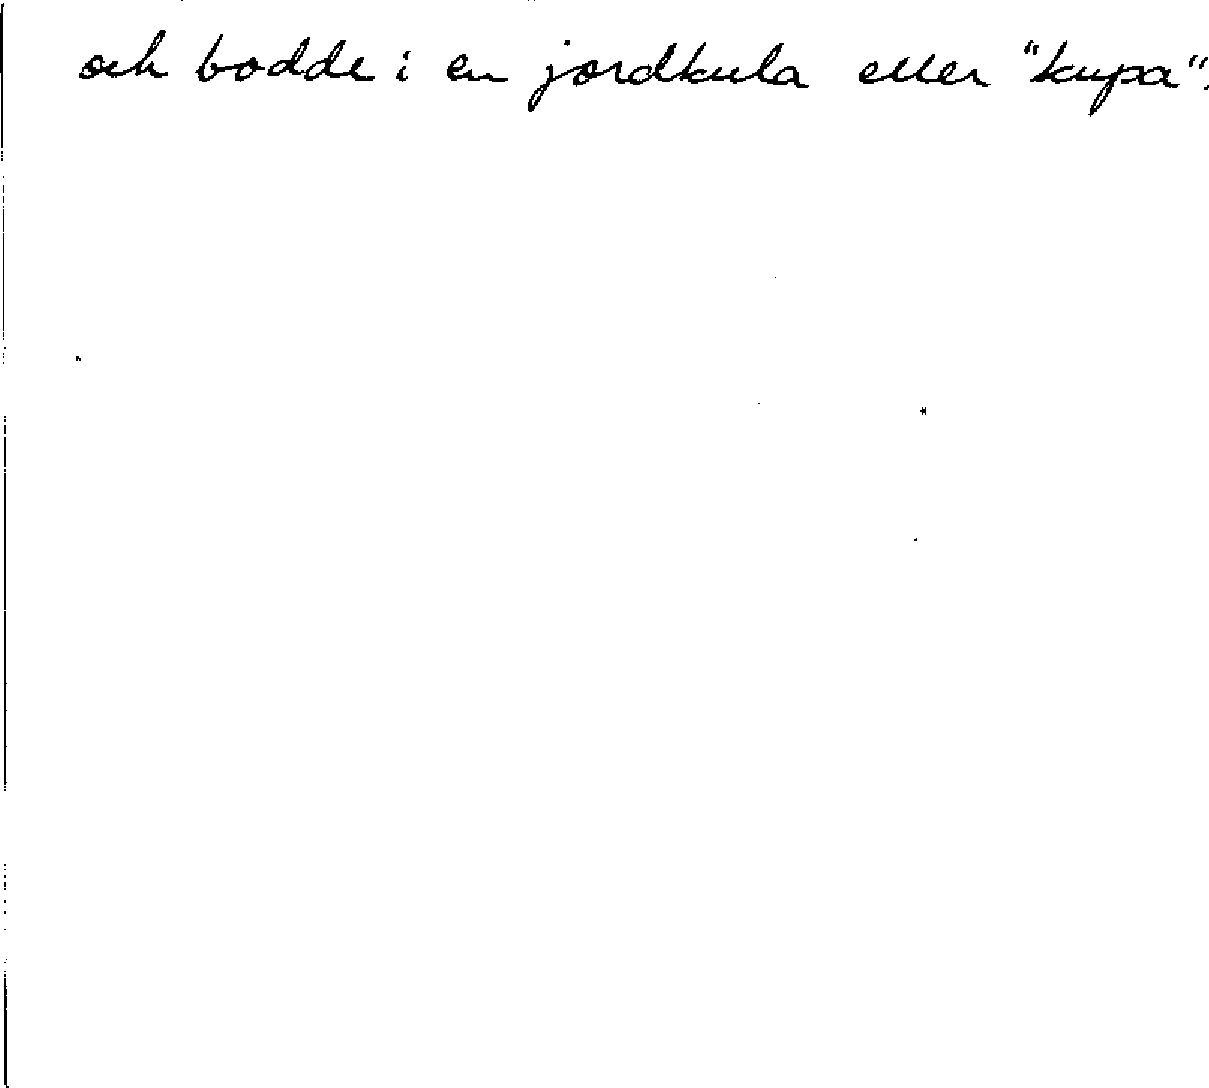 och bodde i en jordkula eller "kupa".